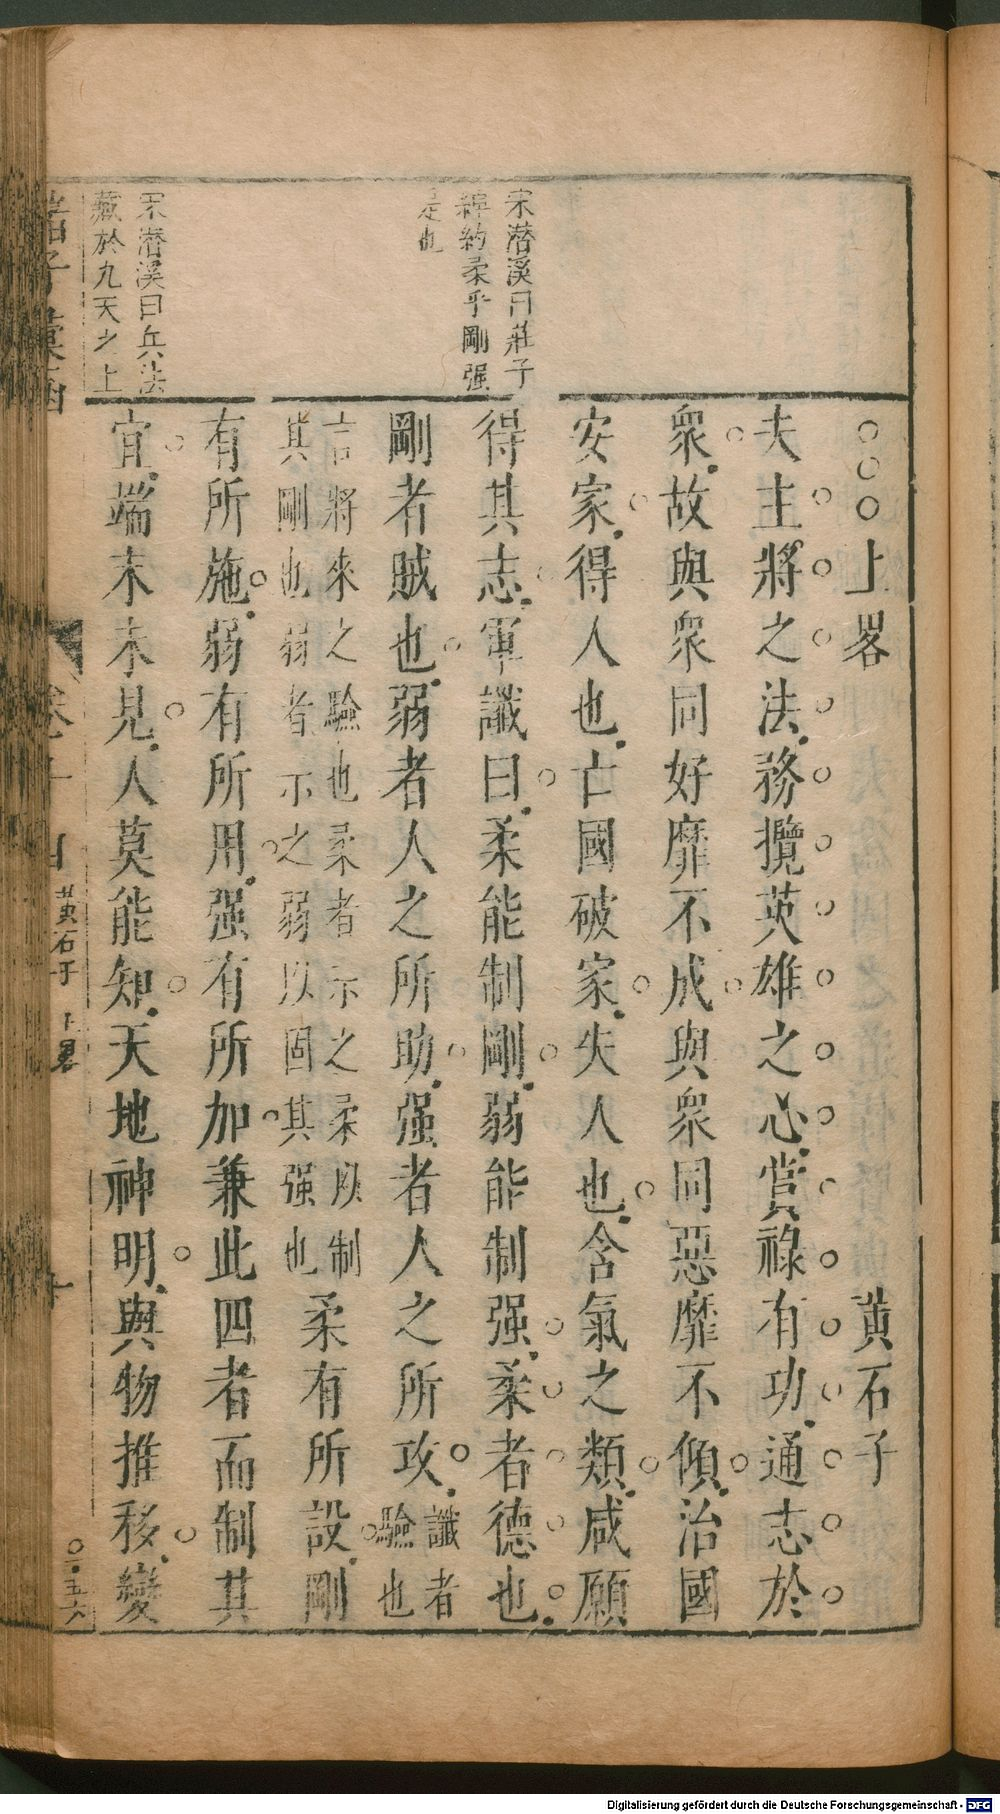 宋潛溪曰莊子
綽約柔乎剛强
是也
宋潛溪曰兵法
藏於九天之上
○○○上畧 黃石子
夫主將之法務攬英雄之心賞祿有功通志於
衆故與衆同好靡不成與衆同惡靡不傾治國
安家得人也亡國破家失人也含氣之類咸願
得其志軍讖曰柔能制剛弱能制强柔者德也
剛者賊也弱者人之所助强者人之所攻讖者
驗也
言將來之驗也柔者示之柔以制
其剛也弱者示之弱以固其强也柔有所設剛
有所施弱有所用强有所加兼此四者而制其
宜端末未見人莫能知天地神明與物推移變
諸子彙函
卷十四
黃石子 上畧
十
○一五六
Digitalisierung gefördert durch die Deutsche Forschungsgemeinschaft - DFG